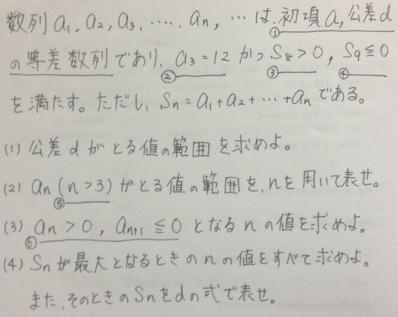 数列 a₁, a₂, a₃, ‥‥. aₙ, … は, 初項 a, 公差 d
①
の等差数列であり, a₃ = 12 かつ S₈ > 0, S₉ ≦ 0
② ③ ④
を満たす。ただし, Sₙ = a₁ + a₂ + … + aₙ である。
(1) 公差 d がとる値の範囲を求めよ。
(2) aₙ (n > 3) がとる値の範囲を, n を用いて表せ。
⑤
(3) aₙ > 0, aₙ₊₁ ≦ 0 となる n の値を求めよ。
⑥
(4) Sₙ が最大となるときの n の値をすべて求めよ。
また, そのときの Sₙ を d の式で表せ。